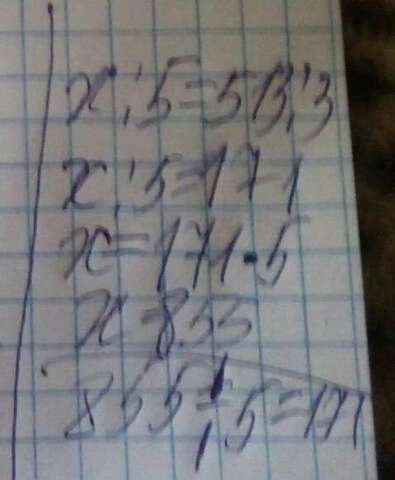 x:5=513:3
x:5=171
x=171·5
x=855
855:5=171